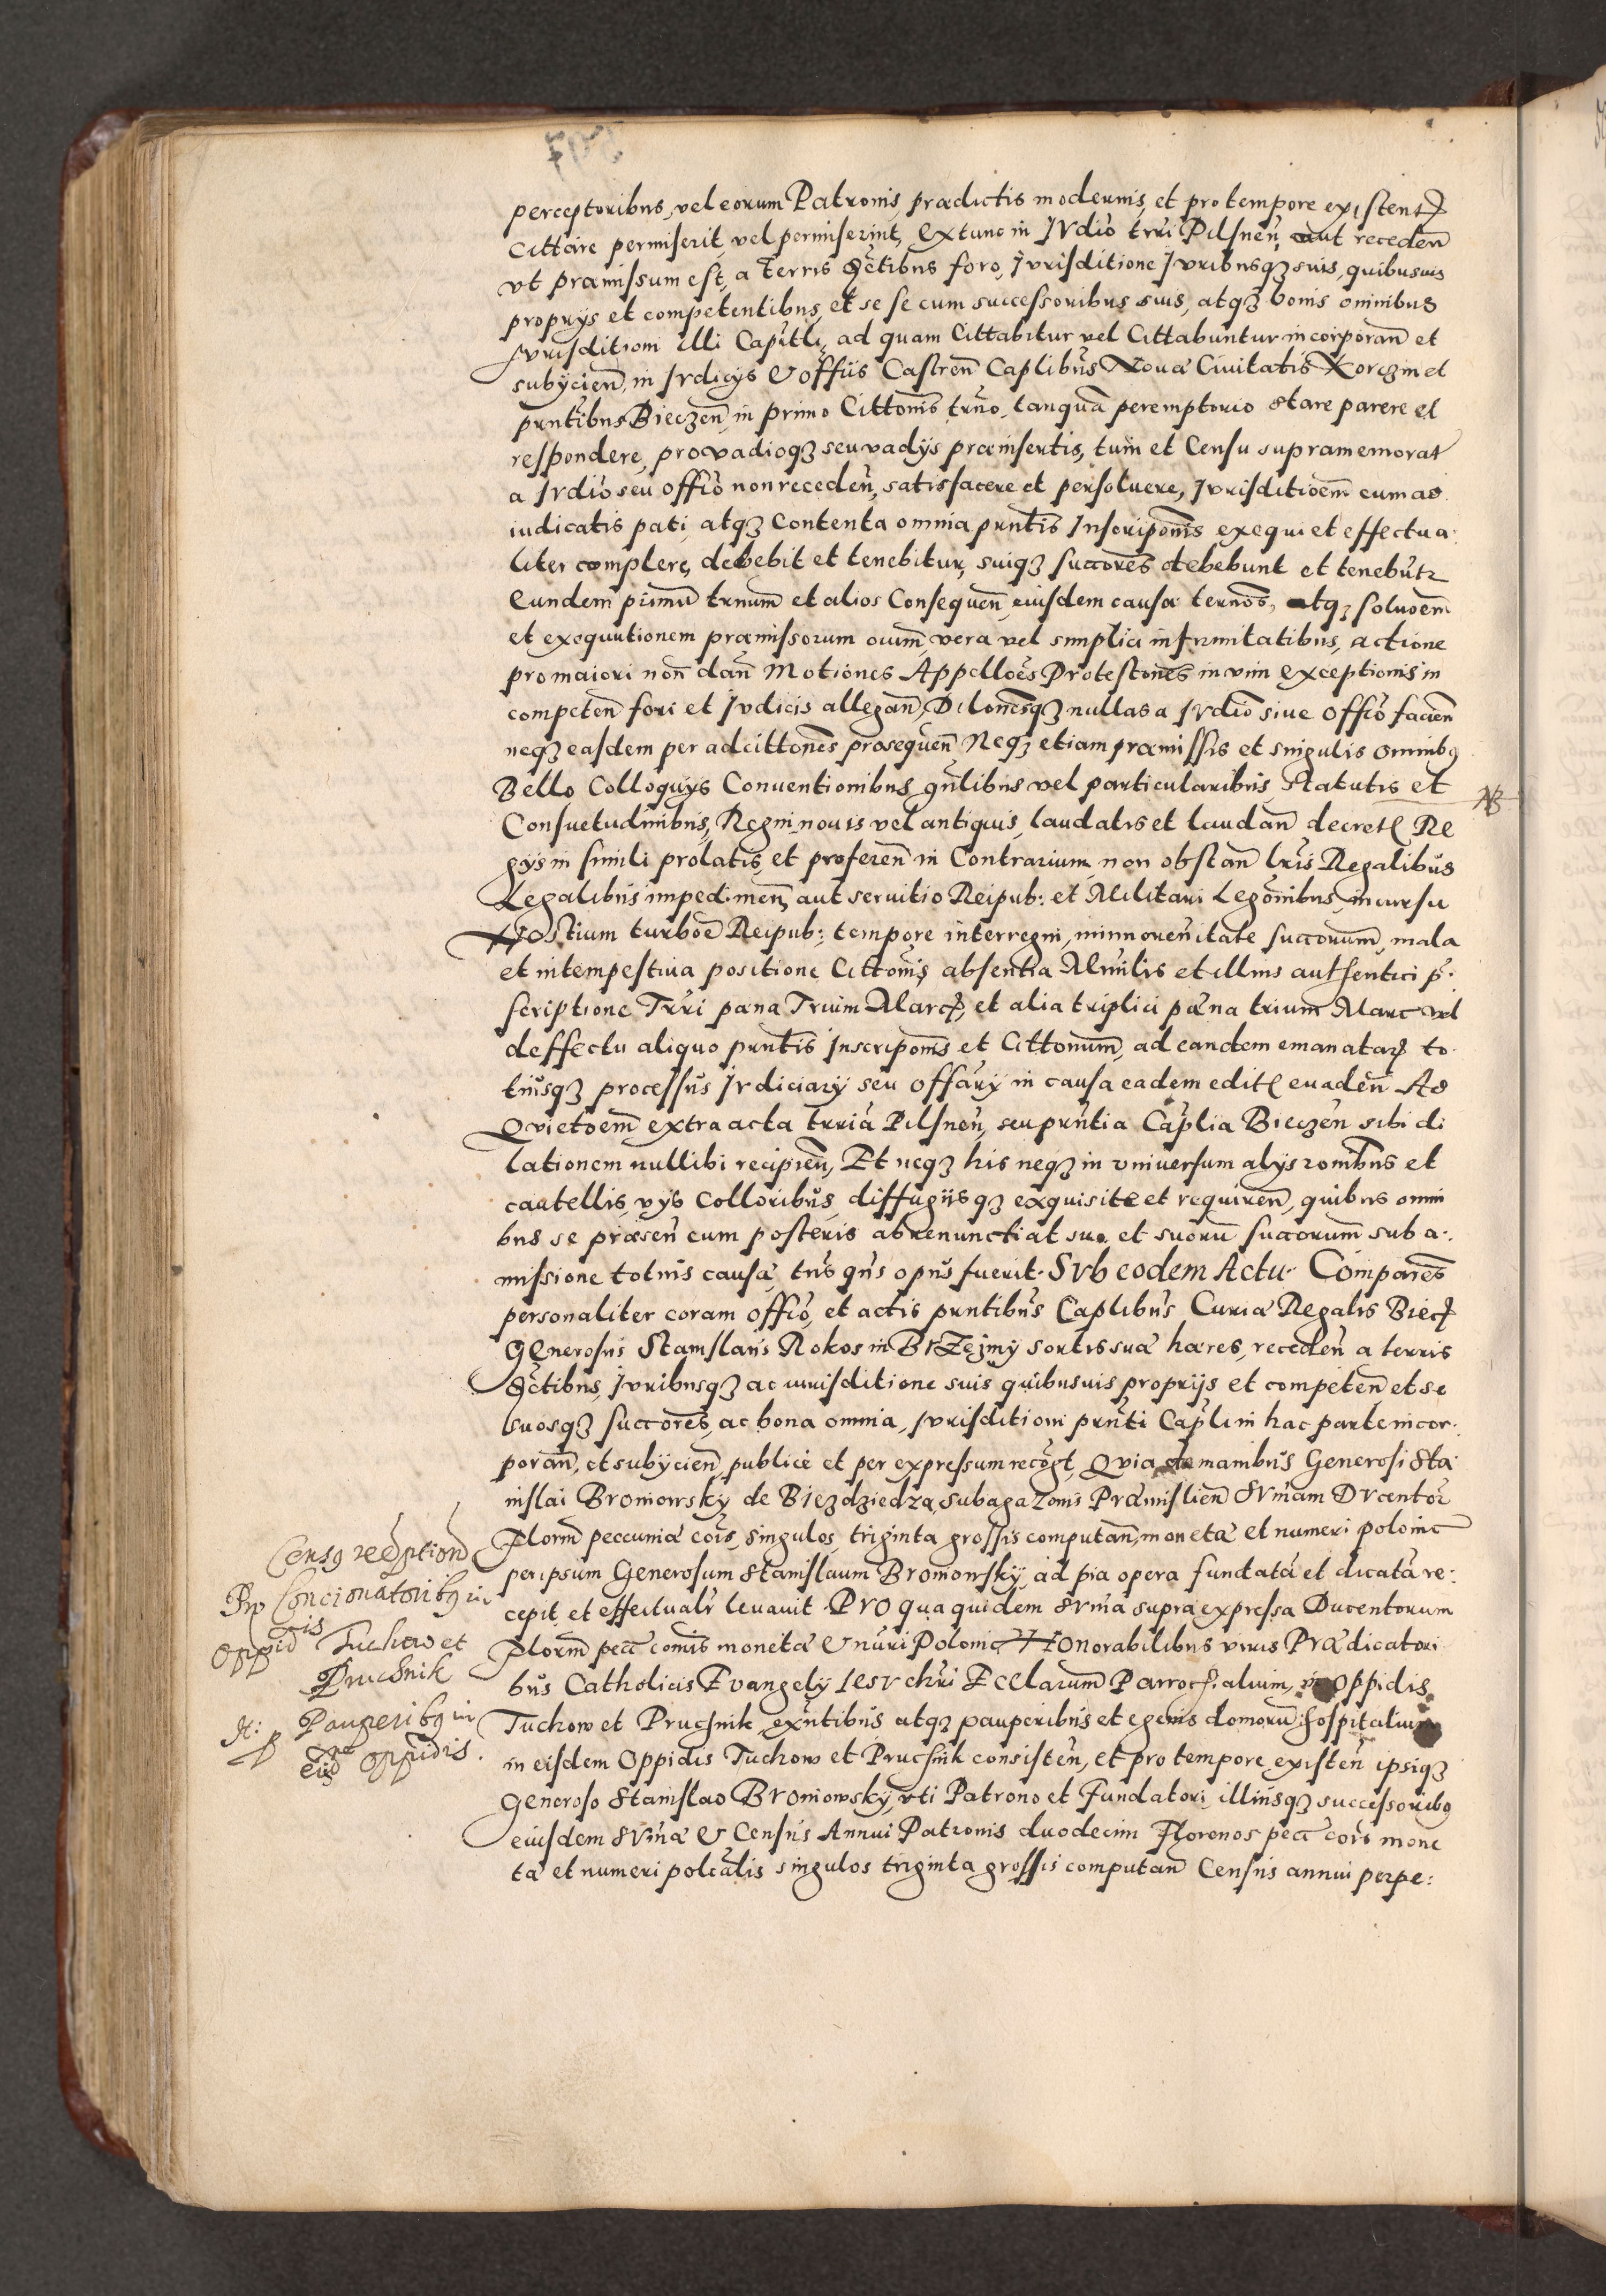 perceptoribus, vel eorum Patronis, prædictis modernis, et pro tempore existent
Cittare permiserit, vel permiserint, Extunc in Ivdio trri Pilsnen, aut receden
vt præmissum est, a Terris Dctibus foro, Jvrisditione Jvribusqz suis, quibusuis
proprys et competentibus, et se se cum successoribus suis, atqz bonis omnibus
Jvrisditioni illi Capitli, ad quam Cittabitur vel Cittabuntur incorporan et
subycien, in Jvdicys & offiis Castren Caplibus Nouæ Ciuitatis Korczin et
pnntibus Bieczen, in primo Cittonis trno, tanquã peremptorio stare parere et
respondere, pro vadioqz seu vadys præinsertis, tum et Censu supramemorat
a Jvdio seu offio non receden, satisfacere et persoluere, Jvrisditioem eum ad
iudicatis pati, atqz contenta omnia pnntis Inscriponis exequi et effectua
liter complere, debebit et tenebitur, suiqz succores debebunt et tenebutr
Eundem primu trnum et alios Consequen, eiusdem causæ ternos, atqz soluoem
et exequutionem præmissorum oium, vera vel simplici infirmitatibus, actione
pro maiori non dan Motiones Appelloes Protestones in vim exceptionis in
competen fori et Jvdicis allegan, Dilonesqz nullas a Jvdio siue offio facien
neqz easdem per adcittones prosequen Neqz etiam præmissis et singulis omnibq
Bello Colloquys Conuentionibus gnlibus vel particularibus Statutis et
NB
Consuetudinibus, Regni nouis vel antiquis, laudatis et laudan decret Re
gys in simili prolatis, et proferen in Contrarium non obstan lris Regalibus
Legalibus impedimen, aut seruitio Reipub: et Militari Legonibus, incursu
Hostium turboe Reipub: tempore interregni, minnorenitate succorum, mala
et intempestiua positione Cittonis, absentia Mlnilis et illius authentici p.
scriptione Trri pæna Trium Marc, et alia triplici pæna trium Marc vel
deffectu aliquo pnntis Inscriponis et Cittonum, ad eandem emanatar to
tiusqz processus Jvdiciary seu offary in causa eadem edit euaden Ad
Qvietoem extra acta trria Pilsnen, seu pnntia Caplia Bieczen sibi di
lationem nullibi recipien, Et neqz his neqz in vniuersum alys ronibus et
cautellis, vys colloribus, diffugiisqz exquisite et requiren, quibus omni
bus se præsen cum posteris abrenunctiat suo et suoru succorum sub a.
missione totius causæ, tris qns opus fuerit. Svb eodem Actu. Compares
personaliter coram offio, et actis pnntibus Caplibus Curiæ Regalis Biec
Generosus Stanislaus Rokos in Brzeziny sortis suæ hæres, receden a terris
Dctibus, Jvribusqz ac iurisditione suis quibusuis proprijs et competen et se
suosqz succores, ac bona omnia, Jvrisditioni pnnti Capli in hac parte incor.
poran, et subycien, publice et per expressum recogt, Qvia de manibus Generosi Sta
nislai Broniowsky de Biezdziedza, subagazonis Præmislien Svmam Dvcentor
Florn peccuniæ cois, singulos, triginta grossis computan, monetæ et numeri polonic
per ipsum Generosum Stanislaum Broniowsky, ad pia opera fundatã et dicatã re:
cepit et effectualr leuauit Pro qua quidem Svma supra expressa Ducentorum
Florn pecc comis monetæ & nuri Polonic Honorabilibus viris Prædicatori
bus Catholicis Evangely Iesv chri Ecclarum Parrochialium, in Oppidis
Tuchow et Pruchnik exntibus atqz pauperibus et egenis domoru hospitalium
in eisdem Oppidis Tuchow et Pruchnik consisten, et pro tempore existen ipsiqz
Generoso Stanislao Broniowsky, vti Patrono et Fundatori, illiusqz successoribq
eiusdem Svmæ & Census Annui Patronis duodecim Florenos pecc cois mone
tæ et numeri polcalis singulos triginta grossis computan Census annui perpe:
Censq receptiond
Pro Concionatoribq in
Oppid Tuchow et
Pruchnik
It: p Pauperibq in
eisd oppidis.